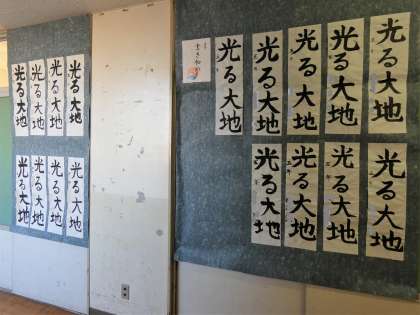 光る大地
光る大地
光る大地
光る大地
光る大地
光る大地
光る大地
光る大地
書き初め
光る大地
光る大地
光る大地
光る大地
光る大地
光る大地
光る大地
光る大地
光る大地